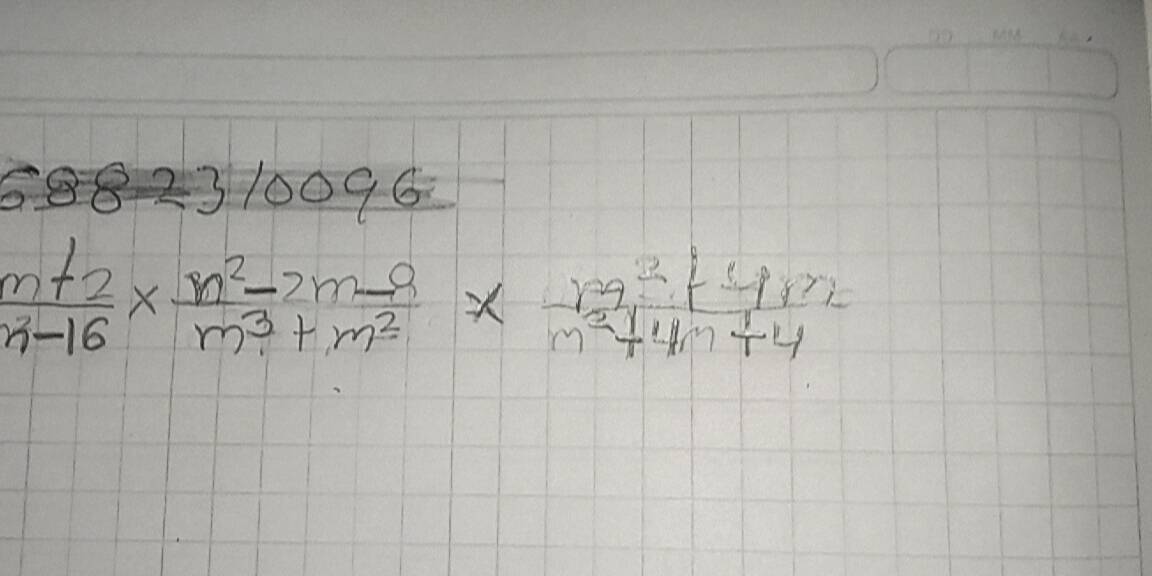 6882310096
m+2/m²-16 × m²-2m-8/m³+m² × m²+4m/m²+4m+4